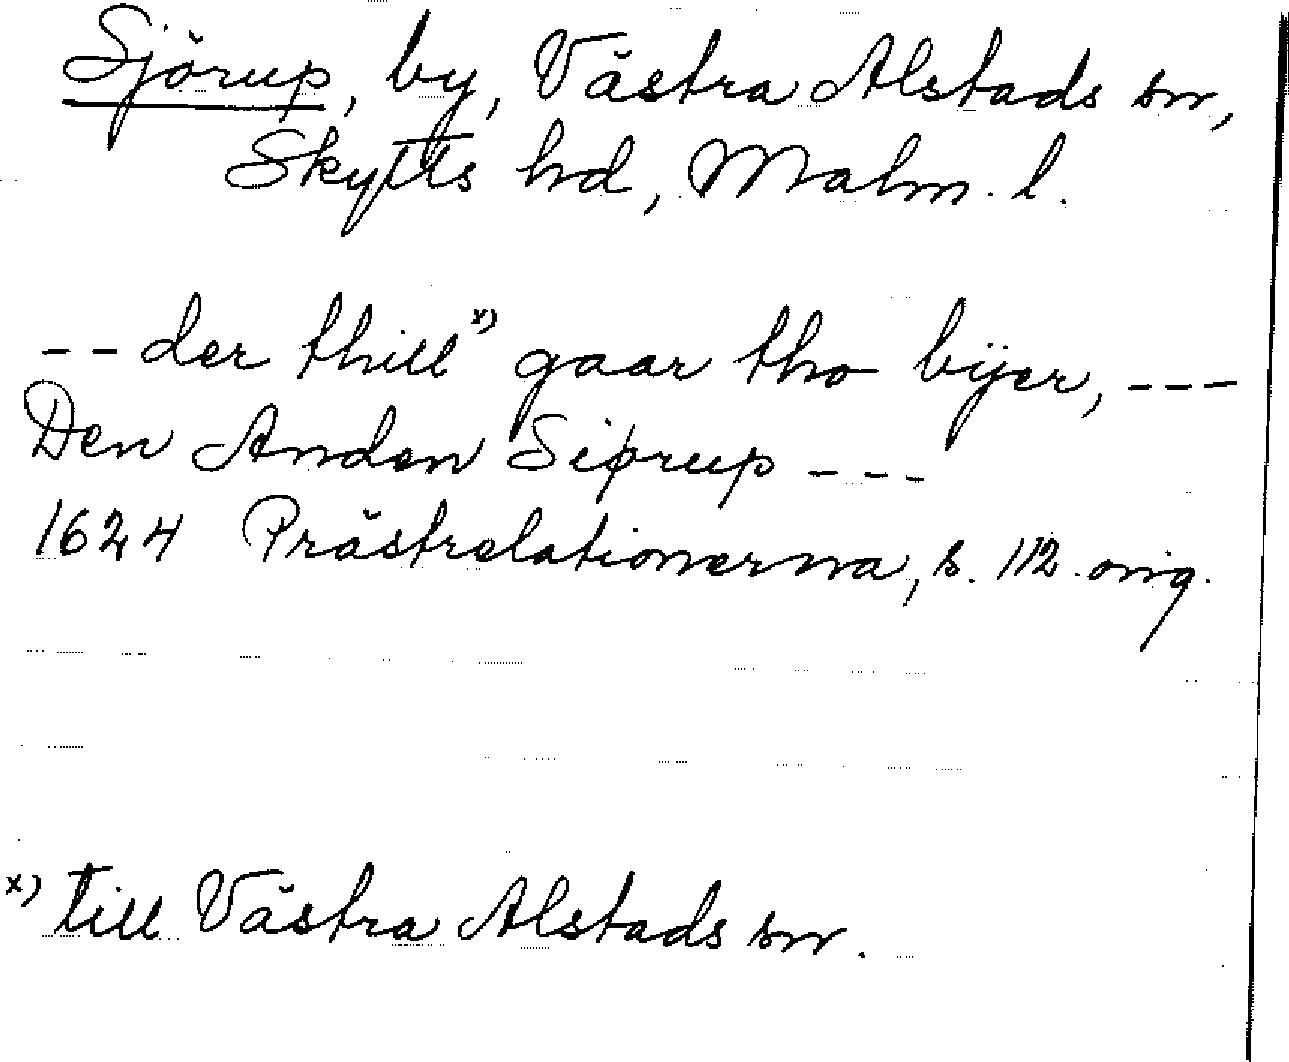 Sjörup, by, Västra Alstads sn,
Skytts hd, Malm. l.
-- der thill x) gaar tho bÿer, ---
Den Anden Siørup ---
1624 Prästrelationerna, s. 112 orig.
x) till Västra Alstads sn.